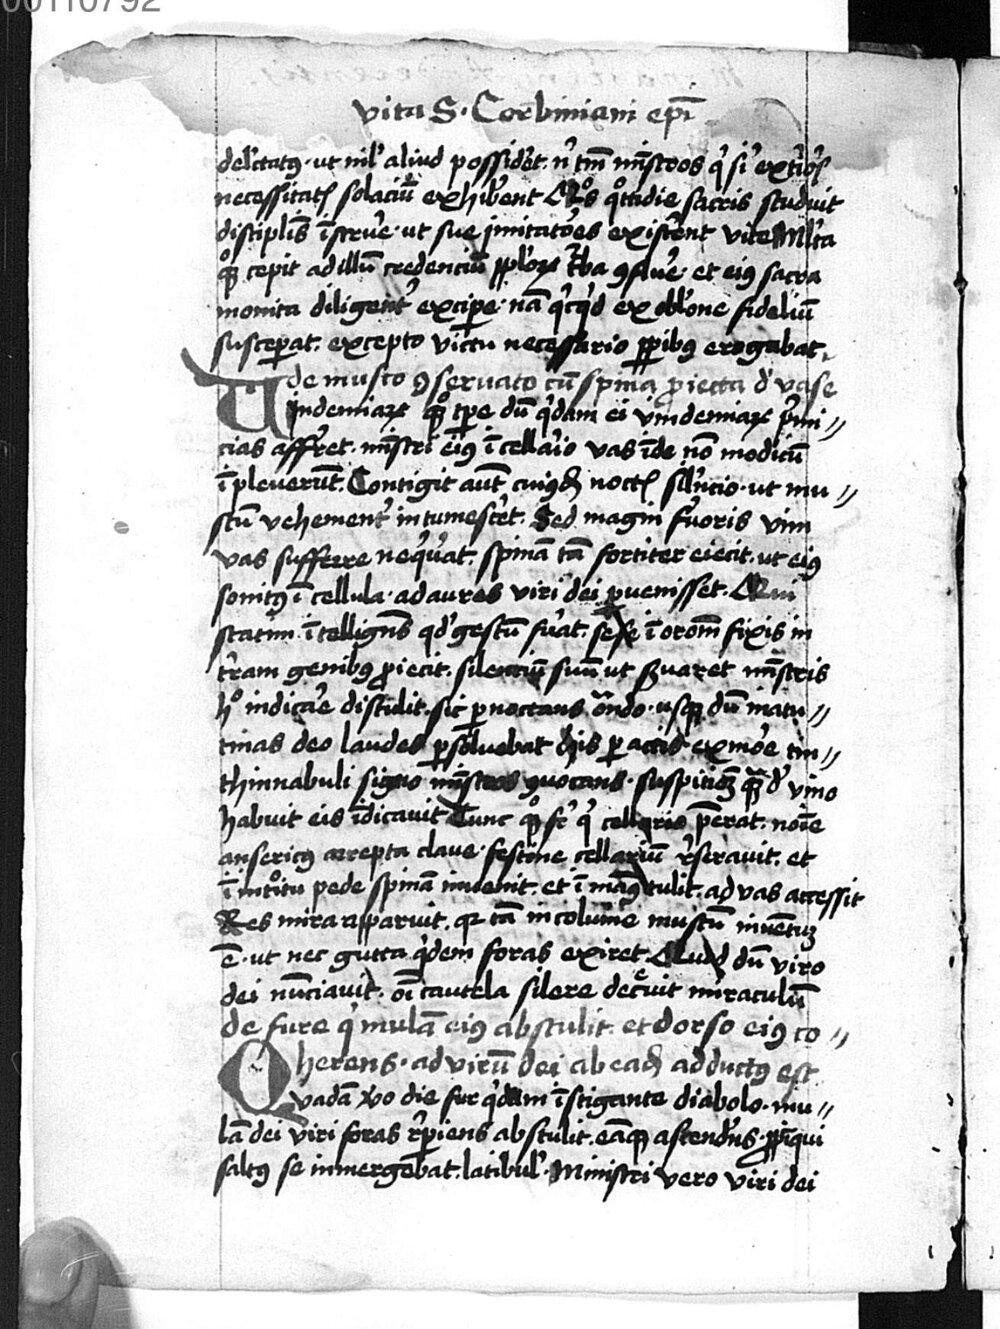 00110792
vita S. Corbiniani epi
delectatꝰ ut nil aliud possidet. n tm mistros q si extio
necessitatꝭ solaciu exhibent Quos qtidie sacris studuit
disciplis istrue ut sue imitatoes existent vite Mlta
qꝫ cepit ad illu credenciu pploꝝ tba ꝯflue et eiꝰ sacra
monita diligent excipe na qcqd ex oblone fideliu
susceperat. excepto victu necessario pꝑibꝰ erogabat.
de musto ꝯservato cu spina ꝓiecta d vase
Vindemiaꝝ qꝫ tpe du qdam ei vindemiaꝝ pmi //
cias affret. mistri eiꝰ i cellaio vas inde no modicu
ipleverut. Contigit aut cuiꝰdꝫ noctꝭ silncio ut mu //
stu vehement intumescet. Sed magni fuoris vim
vas sufferre neqvat. spina ta fortiter eiecit. ut eiꝰ
sonitꝰ i cellula ad aures viri dei puenisset. Qui
statim itelligns qd gestu fuat. sese i orom fixis in
tram genibꝰ ꝓiecit. silenciu suu ut ẜvaret mistris
ho indicae distulit. sic pnoctans orando usqꝫ du matu //
tinas deo laudes psolvebat qis pactis ex moe tin //
thinnabuli signo mistros ꝯvocans suspicioꝫ qꝫ d vino
habuit eis idicavit Tunc qꝫ fr q cellario perat. noie
ansericꝰ arrepta clave festine cellariu reseravit. et
i introitu pede spina invenit. et i manꝰ tulit. ad vas accessit
Res mira apparuit. qꝛ ta incolume mustu inventuꝫ
e. ut nec gutta qdem foras exiret. Quod du viro
dei nunciavit. oi cautela silere decevit miraculu
de fure q mula eiꝰ abstulit. et dorso eiꝰ co //
herens ad viru dei ab eadꝫ adductꝰ est
Quada vo die fur qdam istigante diabolo mu //
la dei viri foras rpiens abstulit. eaqꝫ ascendens ꝓpiqui
saltꝰ se inmergebat. latibul Ministri vero viri dei